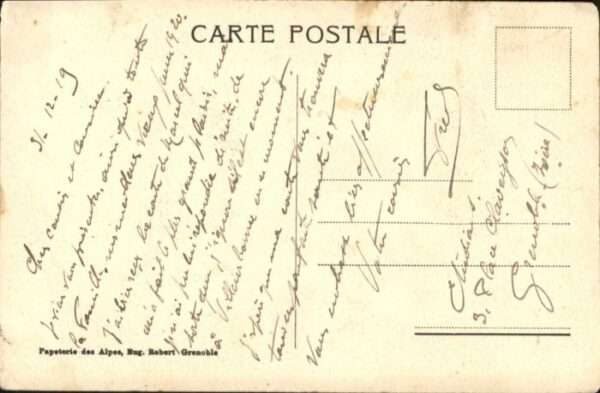 CARTE POSTALE
31-12-19
Chers cousin et cousine
Je viens vous présenter, ainsi qu'à toute
la famille, mes meilleurs vœux pour 1920.
J'ai bien reçu la carte de Marcel qui
m'a fait le plus grand plaisir, mais
je n'ai pu lui répondre de suite
à Villeurbanne en ce moment.
J'espère que ma carte vous trouvera
tous en parfaite santé et
Vous embrasse bien affectueusement
Votre cousin
Fred
Etudiant
3, Place Claveyson
Grenoble (Isère)
Papeterie des Alpes, Eug. Robert Grenoble